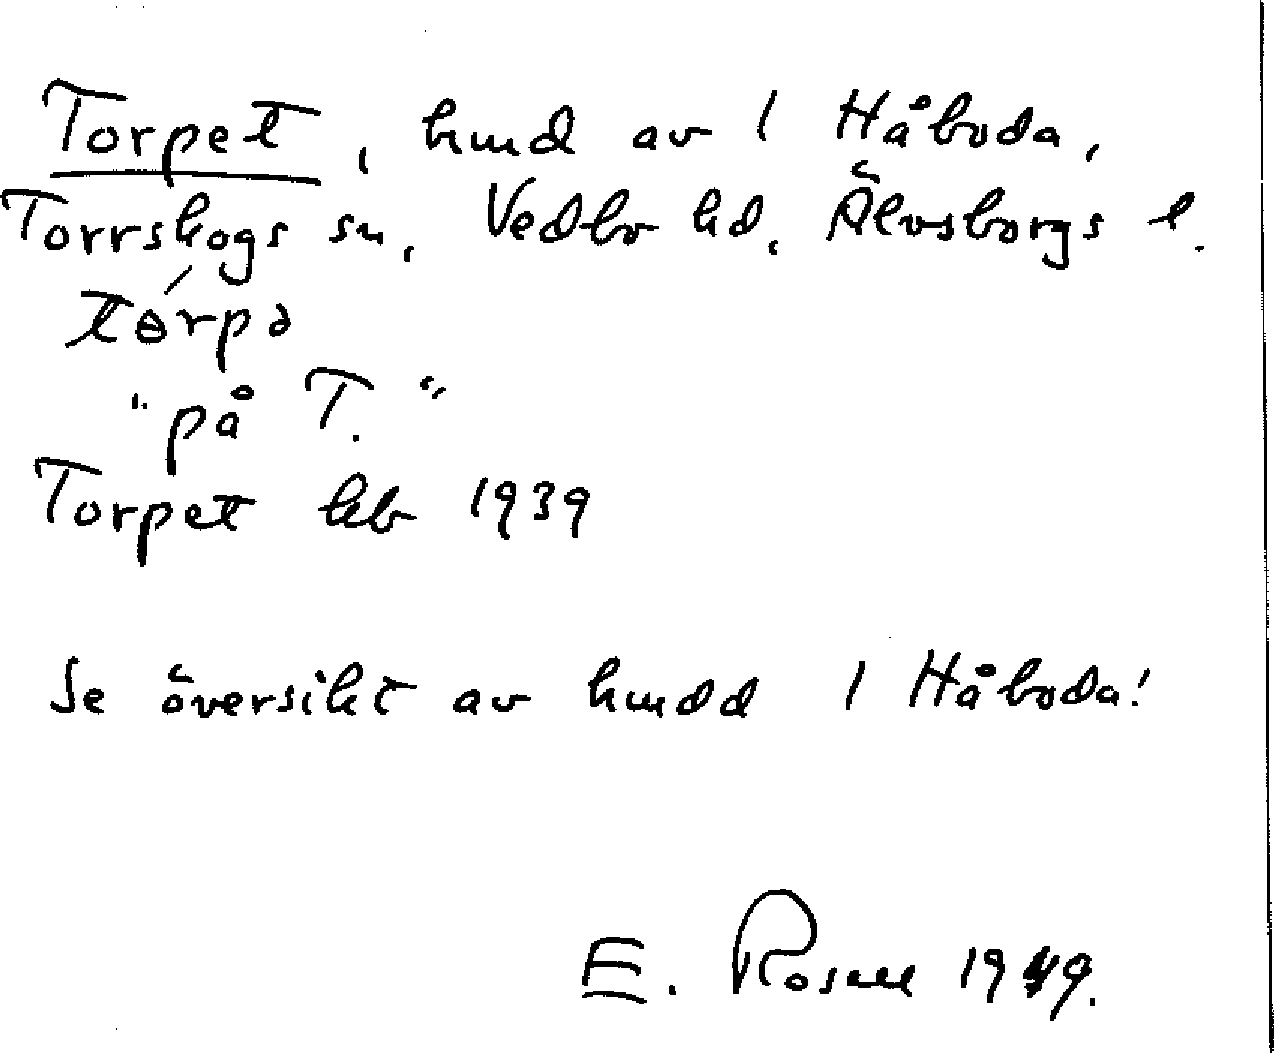 Torpet, hmd av 1 Håboda,
Torrskogs sn, Vedbo hd, Älvsborgs l.
tɵ́rpə
"på T."
Torpet kb 1939
Se översikt av hmdd 1 Håboda!
E. Rosell 1949.